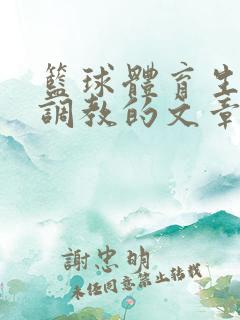 籃球體育生
調教的文章
謝忠明
未經同意禁止轉載